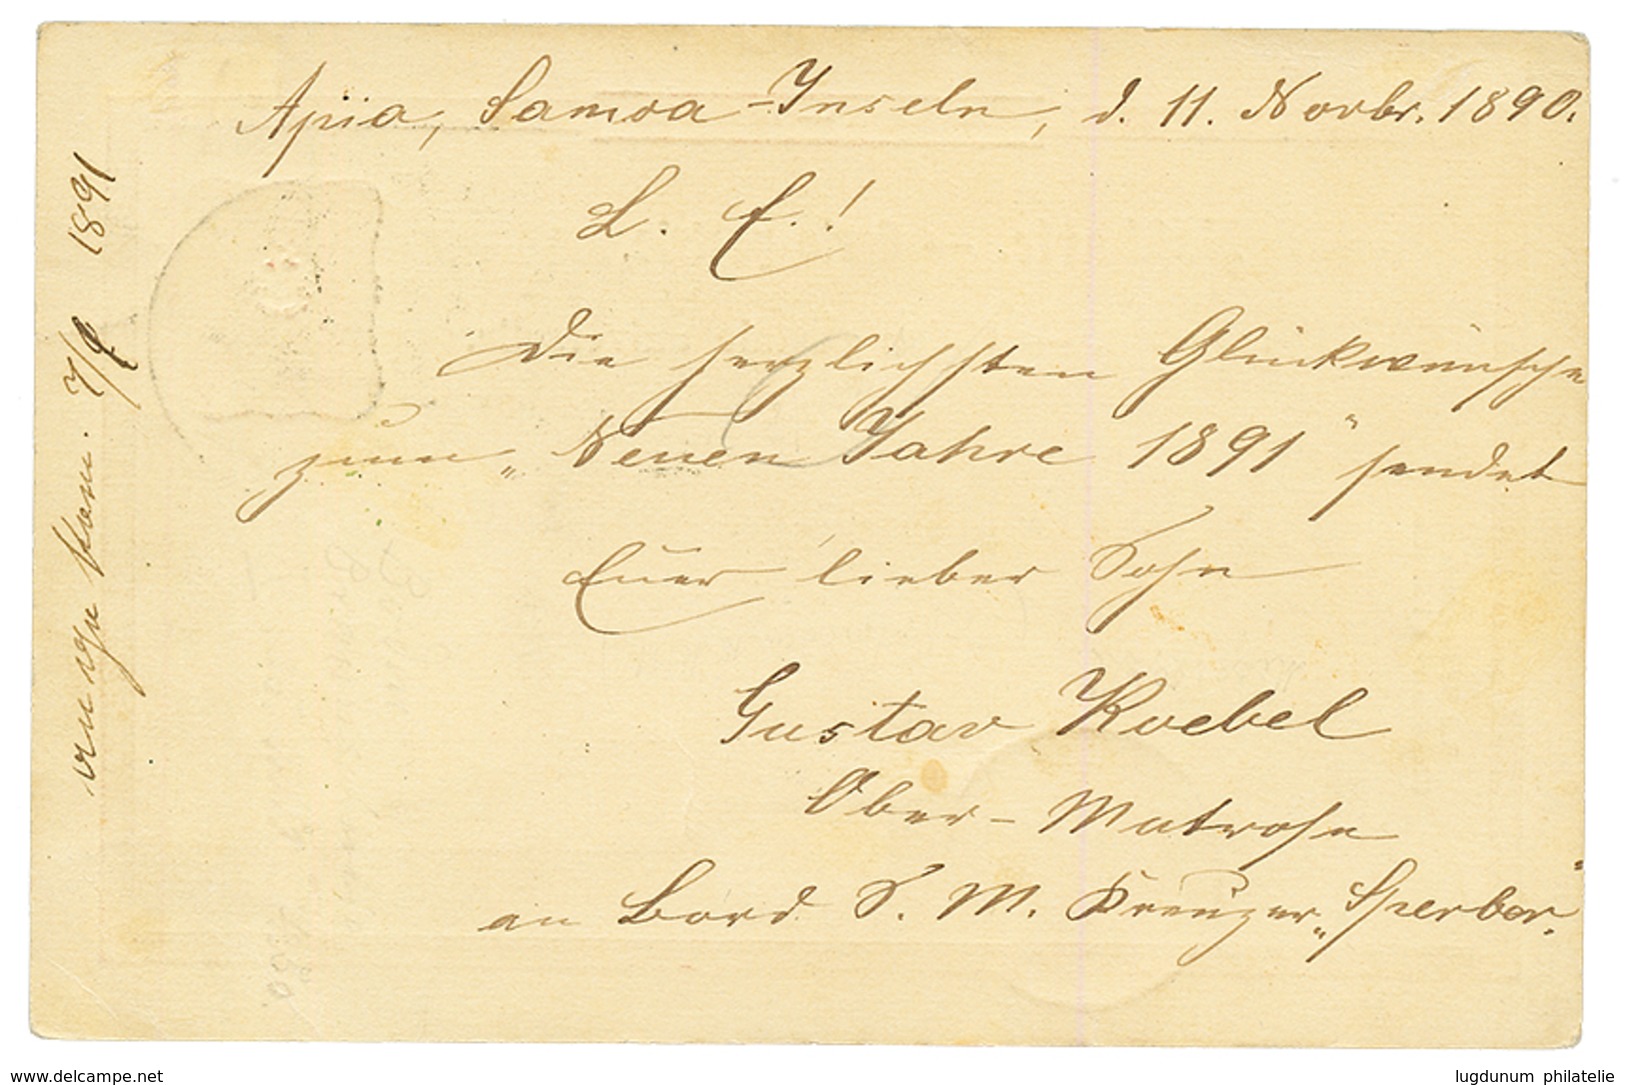 Apia, Samoa-Inseln, d. 11. Novbr. 1890.
L. E.!
Die herzlichsten Glückwünsche
zum „Neuen Jahre 1891" sendet
Euer lieber Sohn
Gustav Koebel
Ober-Matrose
an Bord S. M. Kreuzer „Sperber".
1891
www.delcampe.net
lugdunum philatelie